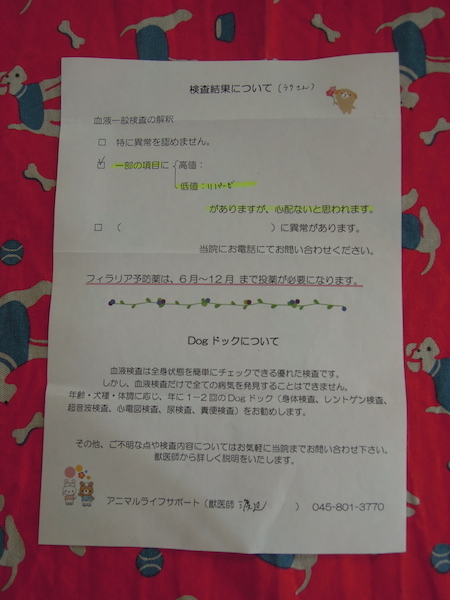 検査結果について（ラテさん）
血液一般検査の解釈
□ 特に異常を認めません。
☑ 一部の項目に 高値：
低値：リパーゼ
がありますが、心配ないと思われます。
□ （ ）に異常があります。
当院にお電話にてお問い合わせください。
フィラリア予防薬は、6月～12月 まで投薬が必要になります。
Dogドックについて
血液検査は全身状態を簡単にチェックできる優れた検査です。
しかし、血液検査だけで全ての病気を発見することはできません。
年齢・犬種・体調に応じ、年に1－2回のDogドック（身体検査、レントゲン検査、
超音波検査、心電図検査、尿検査、糞便検査）をお勧めします。
その他、ご不明な点や検査内容についてはお気軽に当院までお問い合わせ下さい。
獣医師から詳しく説明をいたします。
アニマルライフサポート（獣医師 渡辺 ） 045-801-3770